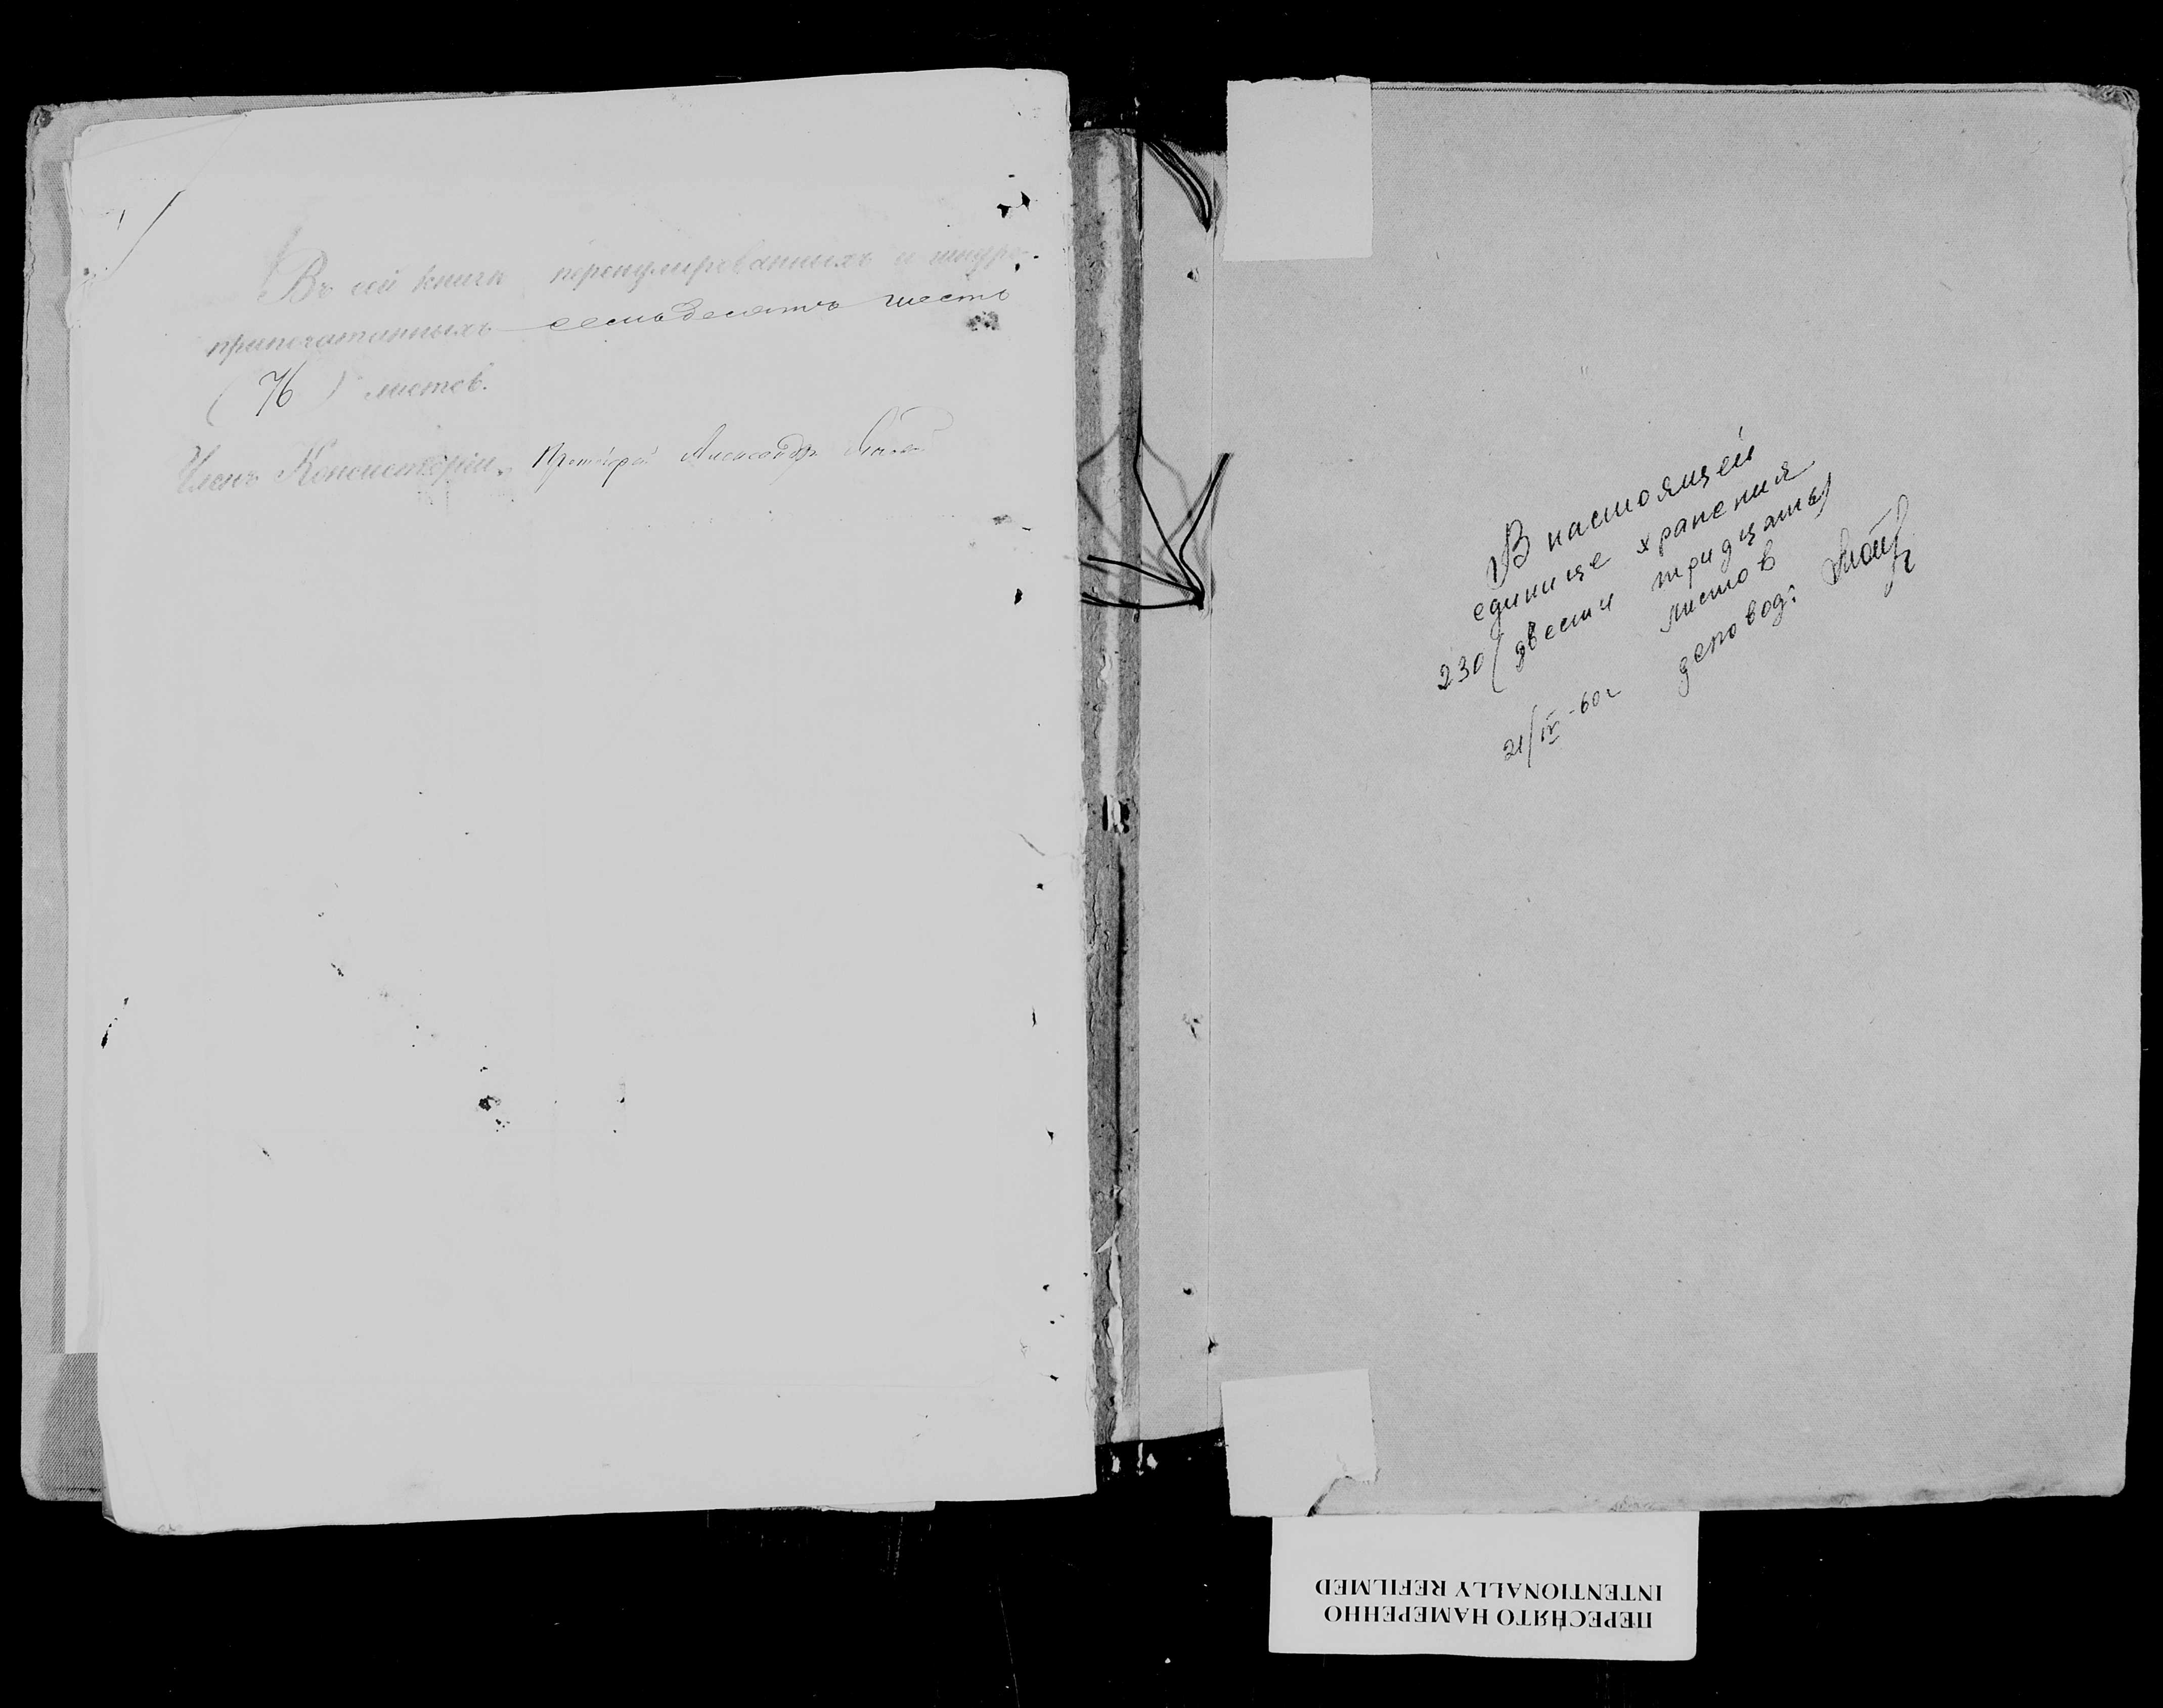 Въ сей книгѣ перенумерованныхъ и шнуро-
припечатанныхъ семьдесятъ шесть
(76) листов.
Членъ Консисторіи, Протоіерей Александръ
В настоящей
единице хранения
230 (двести тридцать)
листов
21/IV-60г деловод:
ПЕРЕСНЯТО НАМЕРЕННО
INTENTIONALLY REFILMED